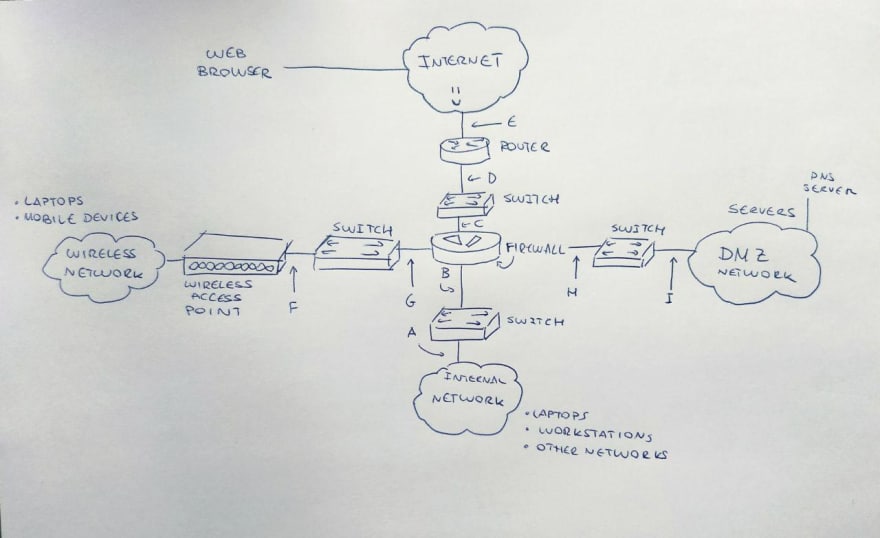 WEB
BROWSER
INTERNET
E
ROUTER
D
SWITCH
C
• LAPTOPS
• MOBILE DEVICES
WIRELESS
NETWORK
WIRELESS
ACCESS
POINT
F
SWITCH
G
FIREWALL
B
H
SWITCH
I
SERVERS
DNS
SERVER
DMZ
NETWORK
A
SWITCH
INTERNAL
NETWORK
• LAPTOPS
• WORKSTATIONS
• OTHER NETWORKS